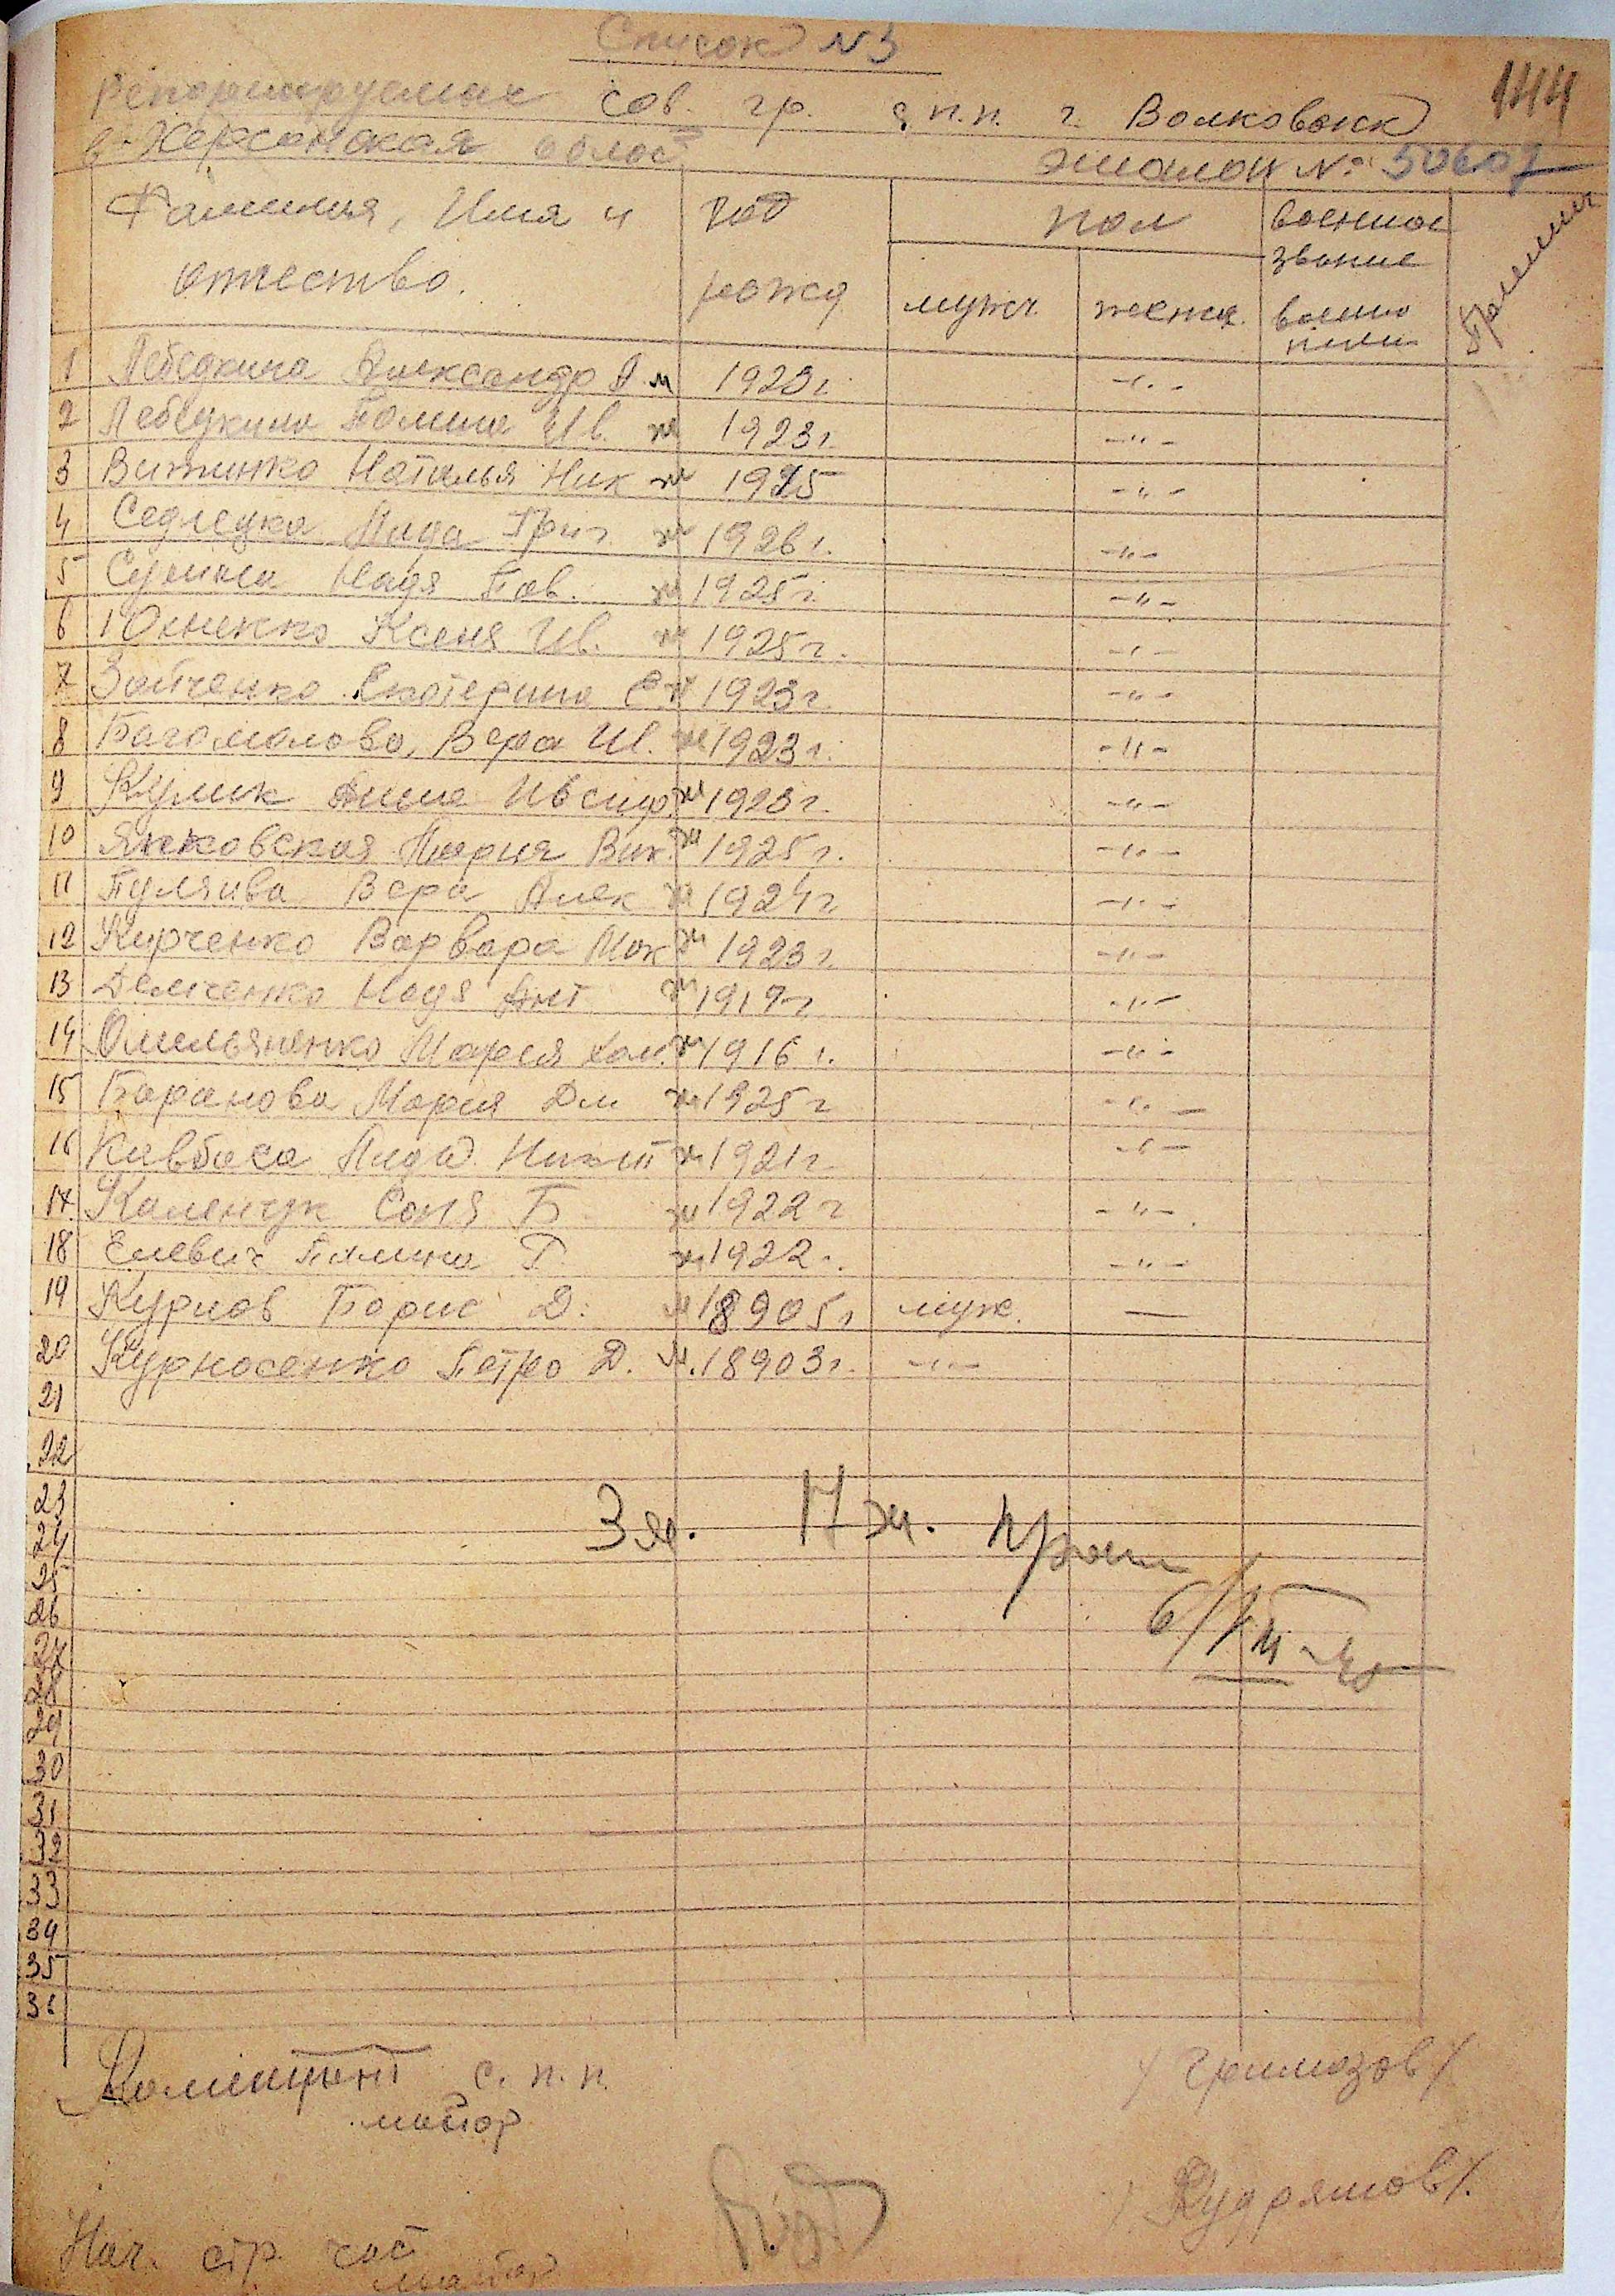 Список N 3
144
репатриируемых сов. гр. с.п.п. г. Волковыск
в Херсонская област эшалон № 50607
Фамилия, Имя и отчество. год рожд. пол мужч. женщ. военное звание Примеч
1 Лебедкина Александр А м 1923г. -"-
2 Лебедкина Полина Ив. ж 1923г. -"-
3 Витинко Наталья Ник ж 1925 -"-
4 Седлецка Лида Григ. ж 1926г. -"-
5 Надя Пав. ж 1925г. -"-
6 Юхненко Ксеня Ив. ж 1925г. -"-
7 Зайченко Екатерина Е. ж 1923г. -"-
8 Багомолова Вера Ив. ж 1923г. -"-
9 Кулик Анна ж 1923г. -"-
10 Янковская Мария Вик. ж 1925г. -"-
11 Вера Алек ж 1924г -"-
12 Кирченко Варвара Мак ж 1923г. -"-
13 Демченко Надя Ант ж 1917г -"-
14 Омельяненко Мария Хом. ж 1916г. -"-
15 Баранова Мария Дм ж 1925г -"-
16 Лида Никит ж 1921г -"-
17 Каленчук Соня Б. ж 1922г -"-
18 Полина Г. ж 1922г. -"-
19 Курнов Борис Д. м 18905г муж. —
20 Курносенко Петро Д. м. 18903г. -"-
21
22
23
24
25
26
27
28
29
30
31
32
33
34
35
36
3 м. 17 ж.
6/VIII-45
Комендант с.п.п.
майор
/Гримазов/
/Кудряшов/.
Нач. стр. част
майор